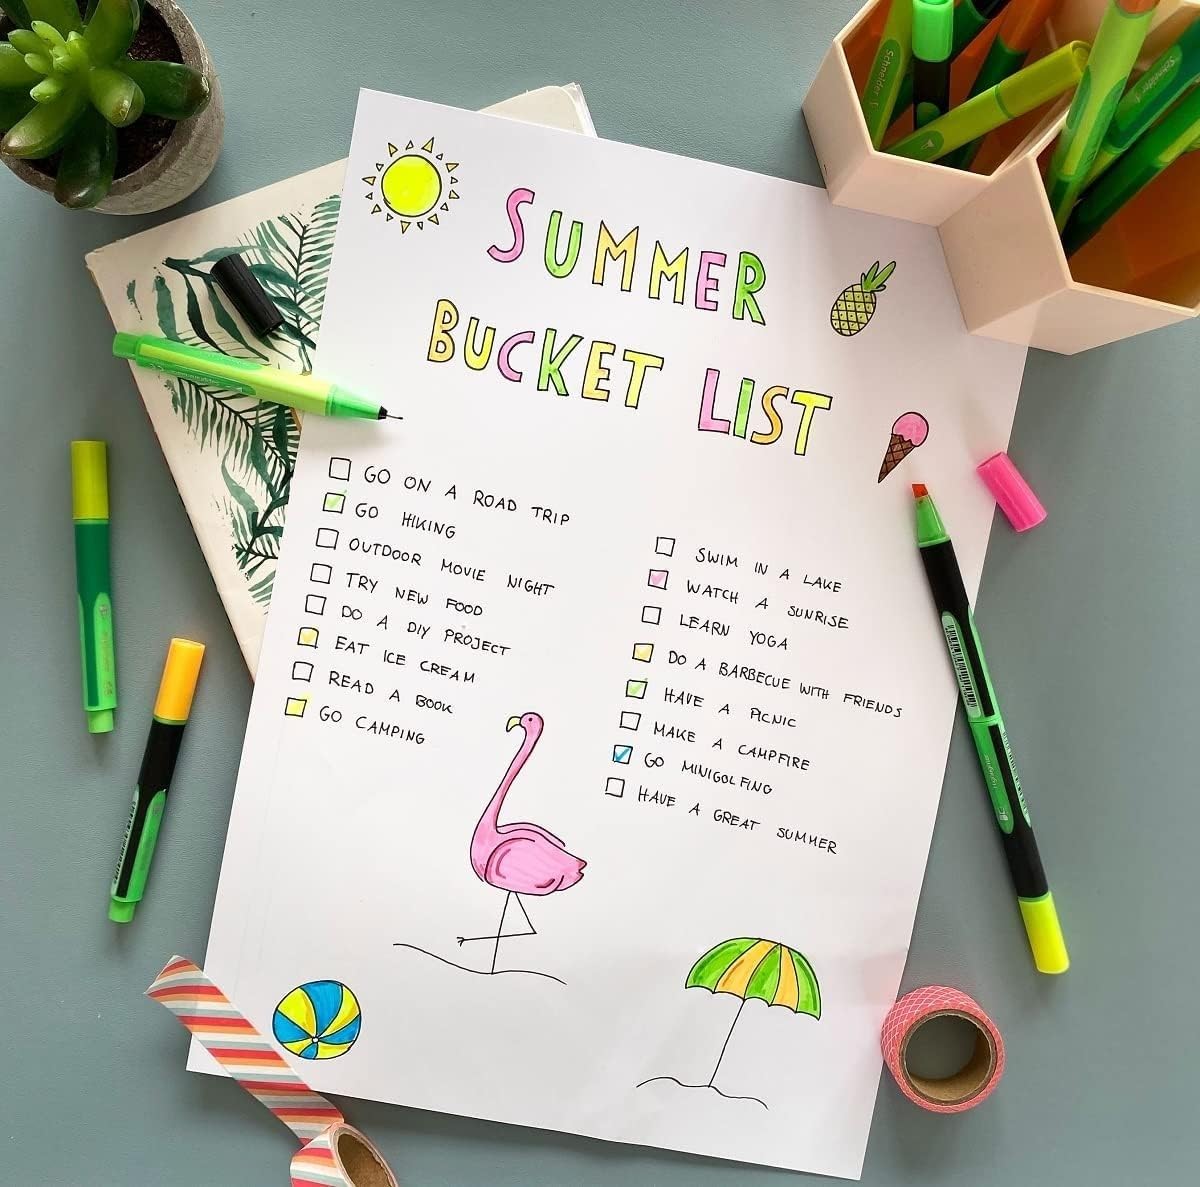 SUMMER
BUCKET LIST
GO ON A ROAD TRIP
GO HIKING
OUTDOOR MOVIE NIGHT
TRY NEW FOOD
DO A DIY PROJECT
EAT ICE CREAM
READ A BOOK
GO CAMPING
SWIM IN A LAKE
WATCH A SUNRISE
LEARN YOGA
DO A BARBECUE WITH FRIENDS
HAVE A PICNIC
MAKE A CAMPFIRE
GO MINIGOLFING
HAVE A GREAT SUMMER
Schneider
Schneider